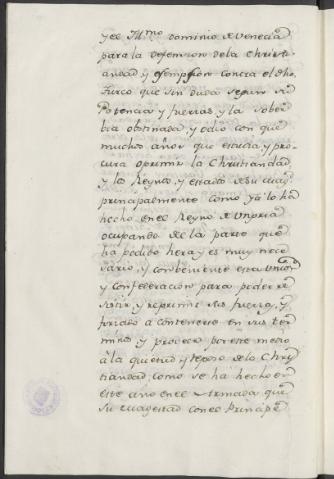 y el Ill.mo dominio de Venecia
para la defension de la Christi
andad y offension contra el dho
Turco que sin duda segun su
Potencia y fuerzas y la sober
bia obstinada y odio con que
muchos años que estudia y pro
cura oprimir la Christiandad
y los Reynos y estados de su Mag.d
principalmente como ya lo ha
hecho en el Reyno de Ungria
ocupando de la parte que
ha podido hera y es muy nece
sario, y combeniente esta Union
y confederacion para poder re
sistir y reprimir sus fuerzas, y
forzado a contenerse en sus ter
minos y proveer por este medio
a la quietud y reposo de la Chrys
tiandad como se ha hecho en
este año en el Armada que
su magestad con el Principe